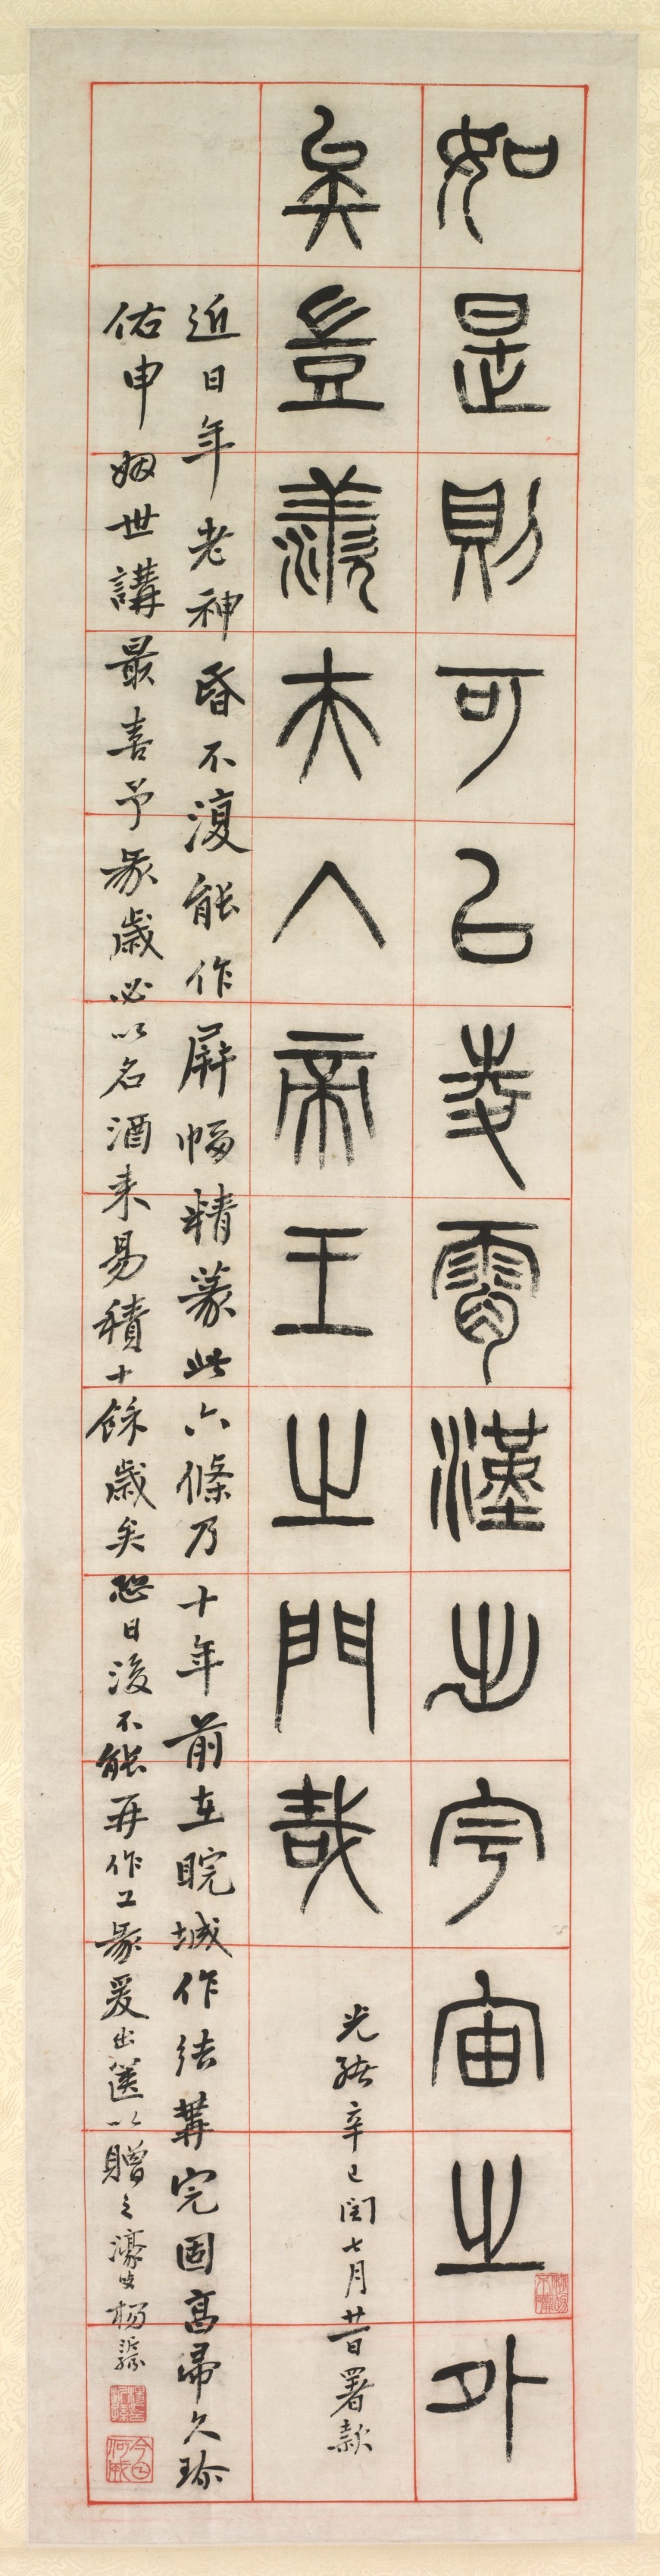 如是則可㠯夌霄漢出宇宙之外
矣豈羨夫入帝王之門哉
光緒辛巳閏七月廿日署款
近日年老神昏不復能作屏幅精篆此六條乃十年前在睆城作結冓完固高帚久珎
佑申姻世講最喜予篆歲必以名酒來易積十餘歲矣恐日後不能再作工篆爰出篋以贈之濠叟楊沂孫